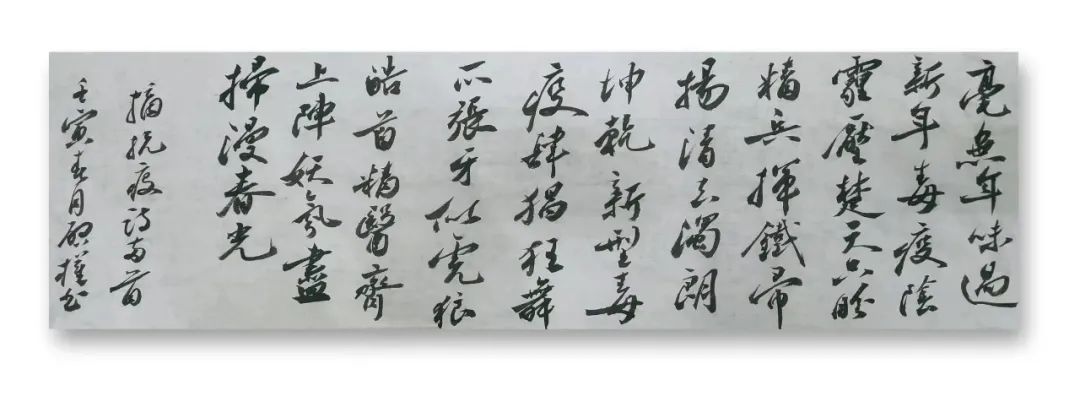 毫無年味過
新年毒疫陰
霾壓楚天只盼
精兵揮鐵帚
揚清去濁朗
坤乾新型毒
疫肆猖狂舞
爪張牙似虎狼
皓首精醫齊
上陣妖氛盡
掃漫春光
摘抗疫詩兩首
壬寅春月書